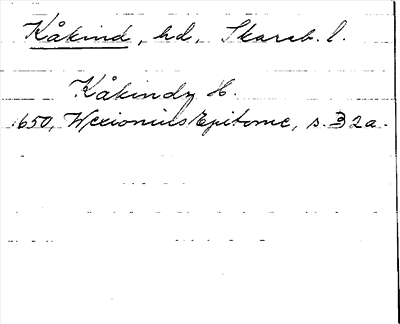 Kåkind, hd, Skarab. l.
Kåkindz H.
1650, Wexionius Epitome, s. 32a.